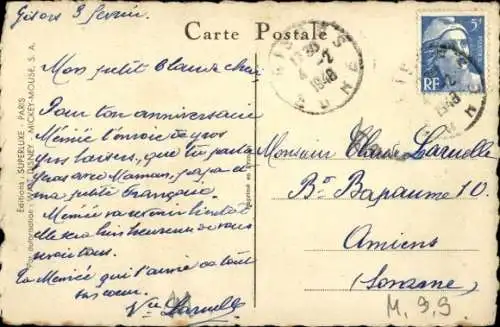 Gisors 3 février.
Carte Postale
Mon petit Claude chéri
Pour ton anniversaire
Mémée t'envoie de gros
gros baisers, que tu partageras
avec Maman, papa et
ma petite Françoise.
Mémée va revenir bientôt
elle sera bien heureuse de vous
revoir tous.
Ta Mémée qui t'aime de tout
son cœur.
Vve Laruelle
Editions SUPERLUXE - PARIS
Par autorisation WALT DISNEY - MICKEY-MOUSE, S. A.
5F
RF
GISORS
EURE
13 30
4 - 2
1948
Monsieur Claude Laruelle
Bd Bapaume 10.
Amiens
(Somme)
M. 99